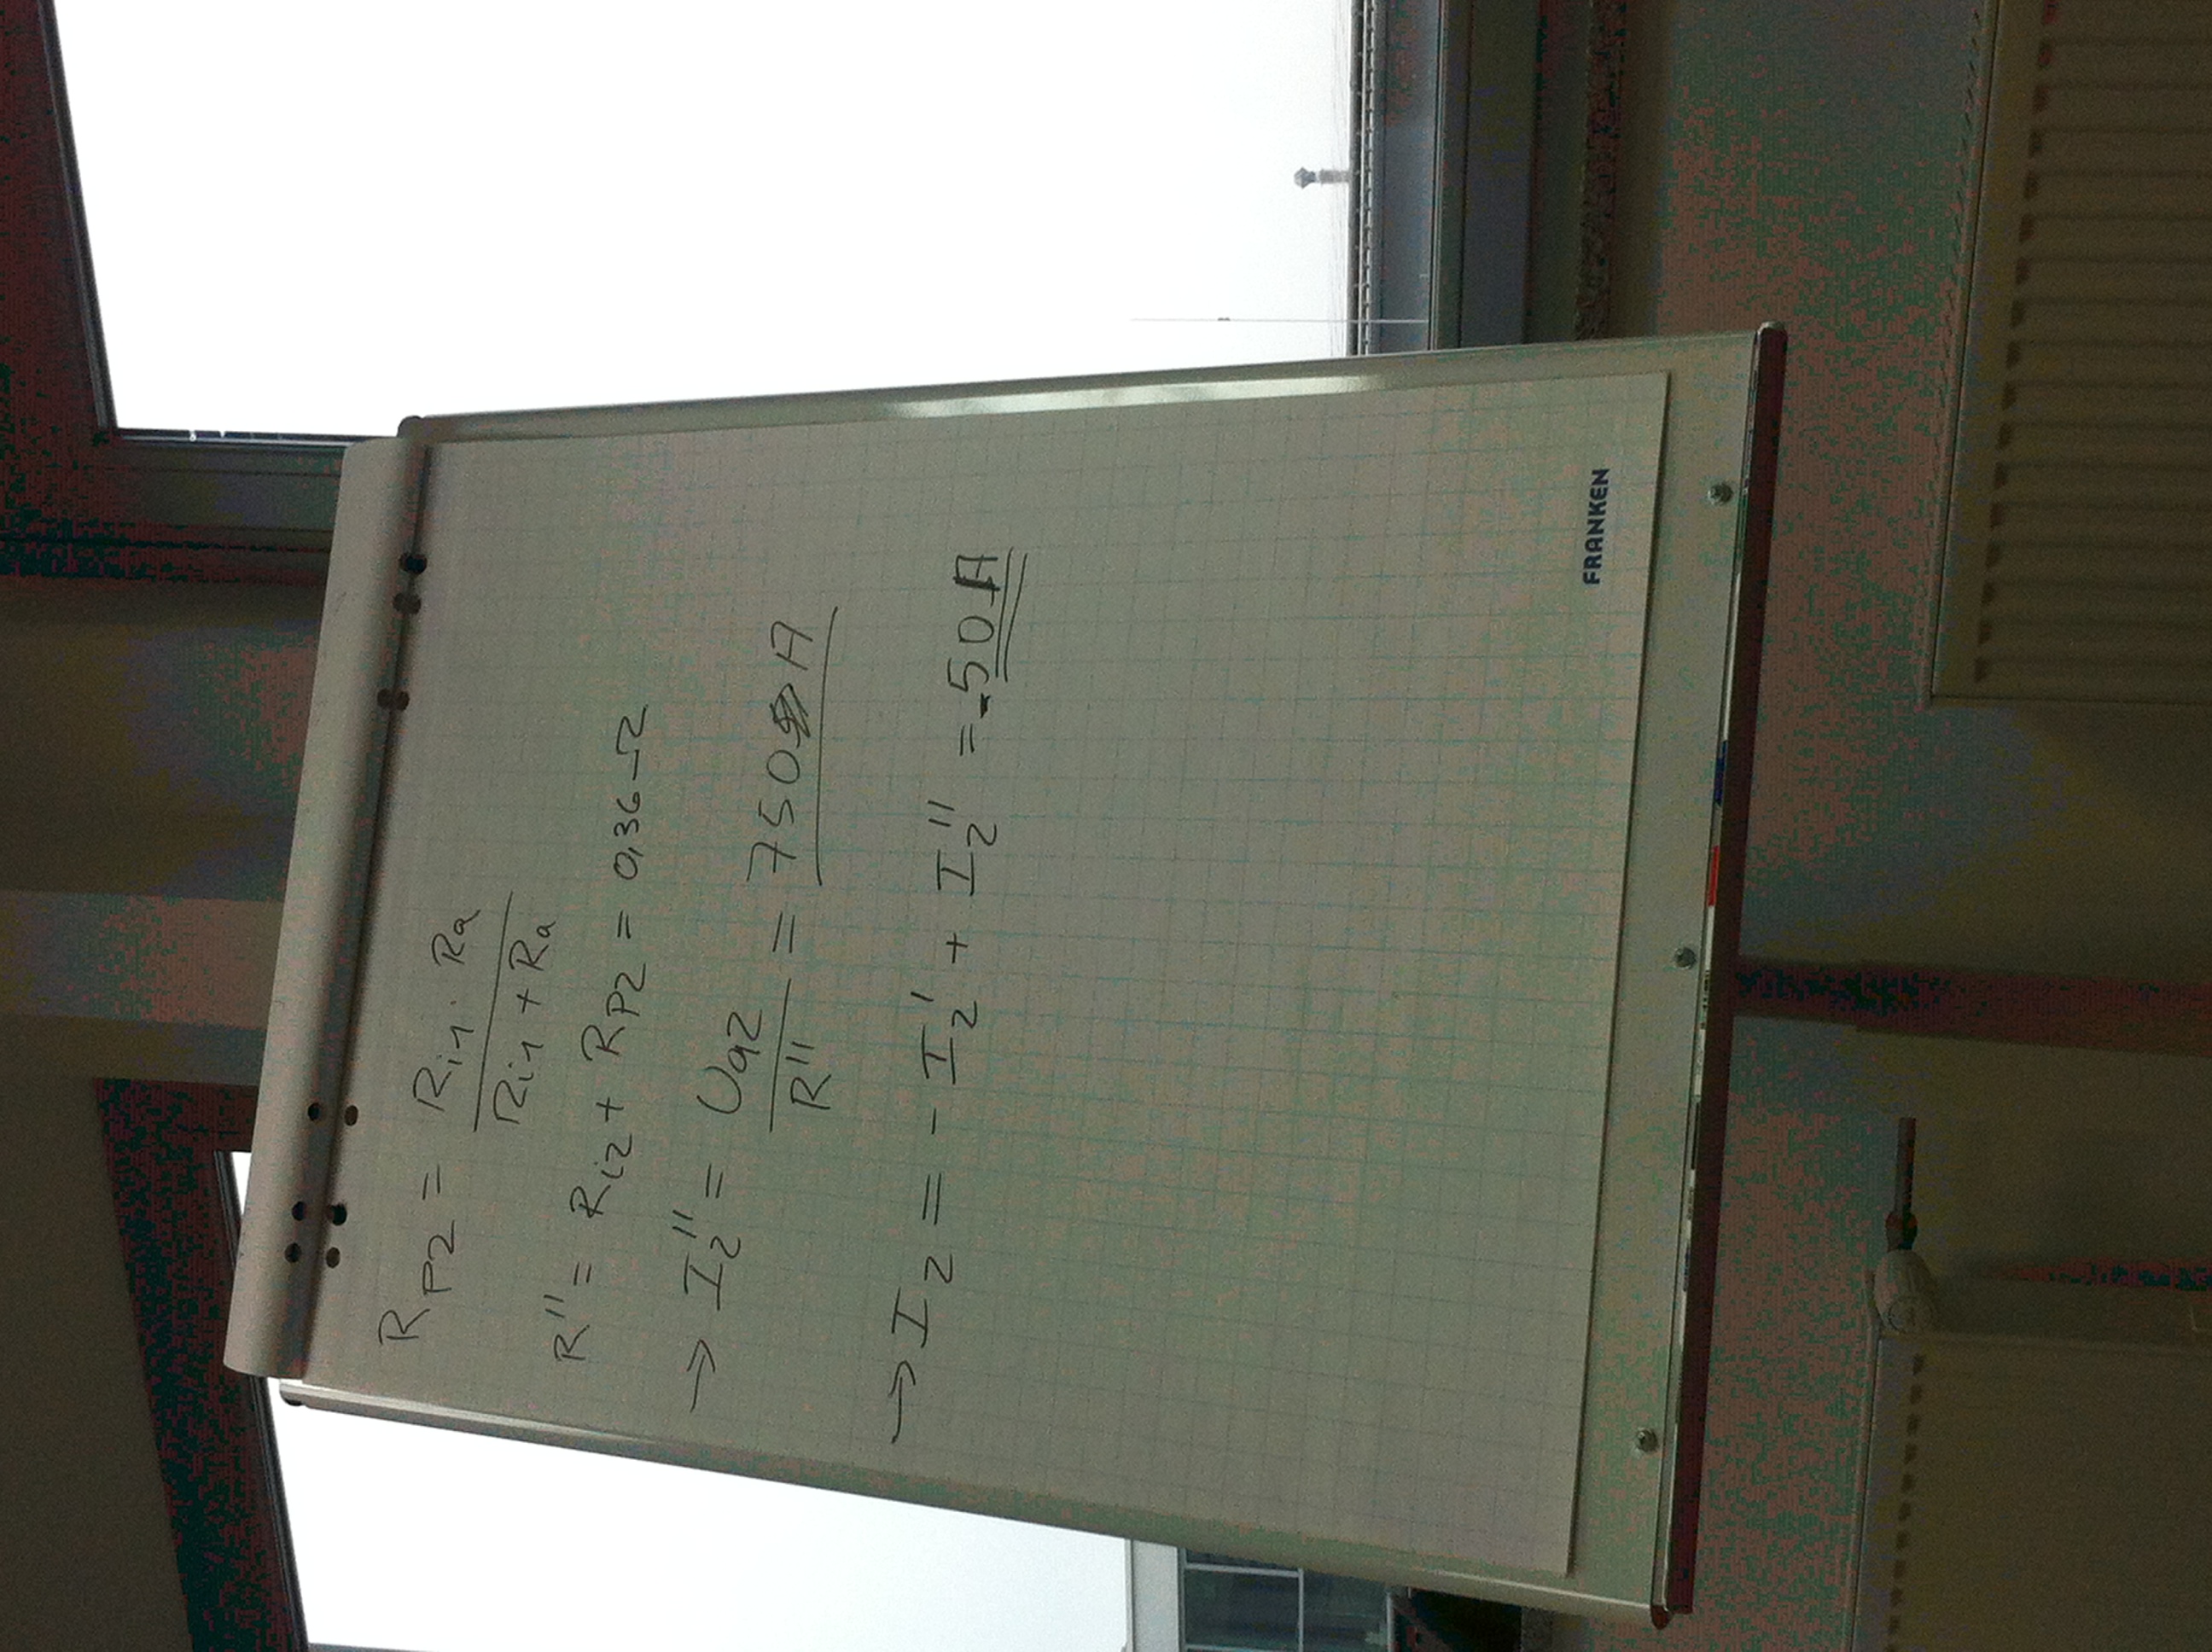 R_P2 = (R_i1 · R_a) / (R_i1 + R_a)
R'' = R_i2 + R_P2 = 0,36 Ω
→ I_2'' = U_q2 / R'' = 750 A
→ I_2 = - I_2' + I_2'' = -50 A
FRANKEN